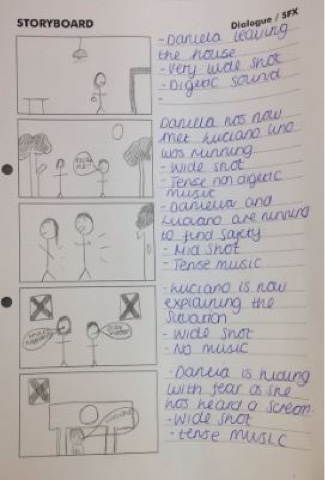 STORYBOARD
Dialogue / SFX
- Daniela leaving
the house
- Very wide shot
- Digetic sound
-
Daniella has now
met Luciano who
was running.
- Wide shot
- Tense non digetic
music
- Daniella and
Luciano are running
to find safety
- Mid shot
- Tense music
- Luciano is now
explaining the
situation
- Wide shot
- No music
- Daniela is hiding
with fear as she
has heard a scream.
- Wide shot
- tense music